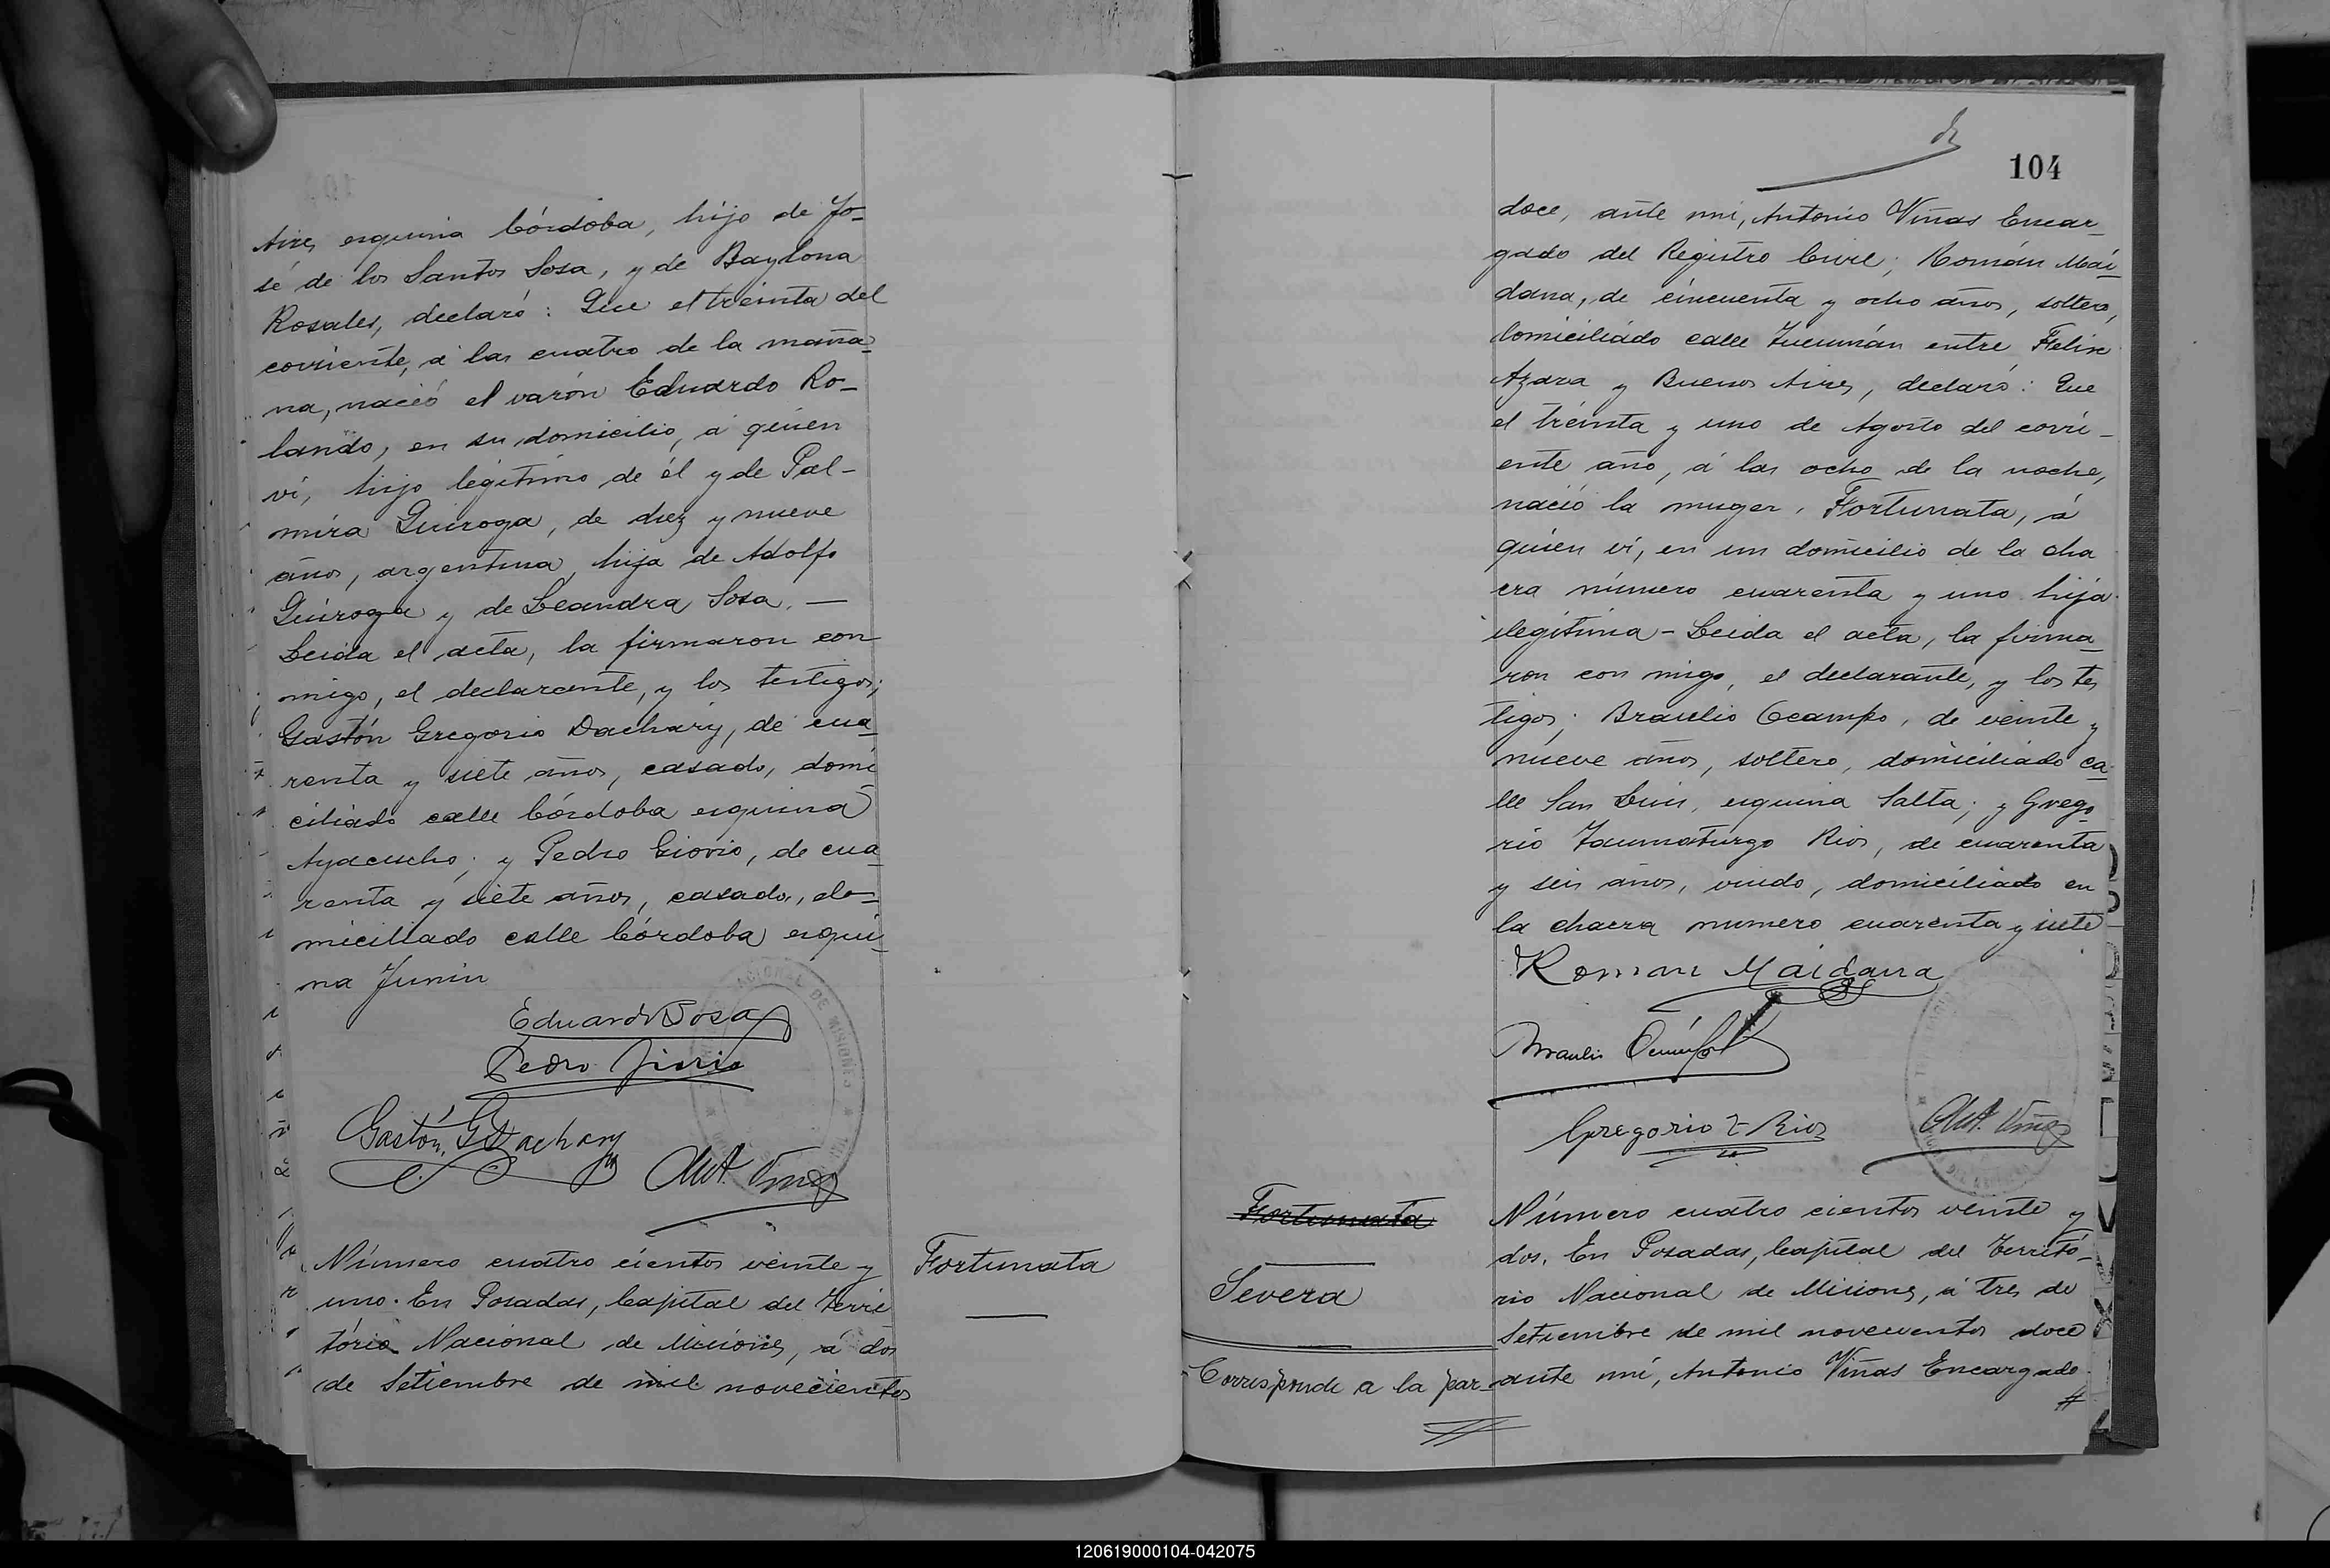 Aires esquina Córdoba, hijo de Jo-
sé de los Santos Sosa, y de Baylona
Rosales, declaró: Que el treinta del
corriente, á las cuatro de la maña-
na, nació el varón Eduardo Ro-
lando, en su domicilio, á quien
ví, hijo legítimo de él y de Pal-
mira Quiroga, de diez y nueve
años, argentina, hija de Adolfo
Quiroga y de Leandra Sosa. —
Leida el acta, la firmaron con
migo, el declarante, y los testigos;
Gastón Gregorio Dachary, de cua-
renta y siete años, casado, domi
ciliado calle Córdoba esquina
Ayacucho; y Pedro Giovio, de cua-
renta y siete años, casado, do-
miciliado calle Córdoba esqui-
na Junin
Eduardo Sosa
Pedro Giovio
Gastón G Dachary
Ant. Viñas
Número cuatro cientos veinte y
uno. En Posadas, Capital del Terri
tório Nacional de Misiónes, á dos
de Setiembre de mil novecientos
Fortunata
104
doce, ante mi, Antonio Viñas Encar-
gado del Registro Civil; Román Mai-
dana, de cincuenta y ocho años, soltero,
domiciliado calle Tucumán entre Felix
Azara y Buenos Aires, declaró: Que
el treinta y uno de Agosto del corri-
ente año, á las ocho de la noche,
nació la muger, Fortunata, á
quien ví, en un domicilio de la cha
cra número cuarenta y uno hija
ilegítima - Leida el acta, la firma-
ron con migo, el declarante, y los tes
tigos; Braulio Ocampo, de veinte y
nueve años, soltero, domiciliado ca-
lle San Luis, esquina Salta; y Grego
rio Taumaturgo Rios, de cuarenta
y seis años, viudo, domiciliado en
la chacra numero cuarenta y siete
Roman Maidana
Braulio Ocampo
Gregorio T Rios
Ant. Viñas
Fortunata
Severa
Corresponde a la par-
Número cuatro cientos veinte y
dos. En Posadas, Capital del Territó-
rio Nacional de Misiones, á tres de
Setiembre de mil novecientos doce
ante mí, Antonio Viñas Encargado
120619000104-042075